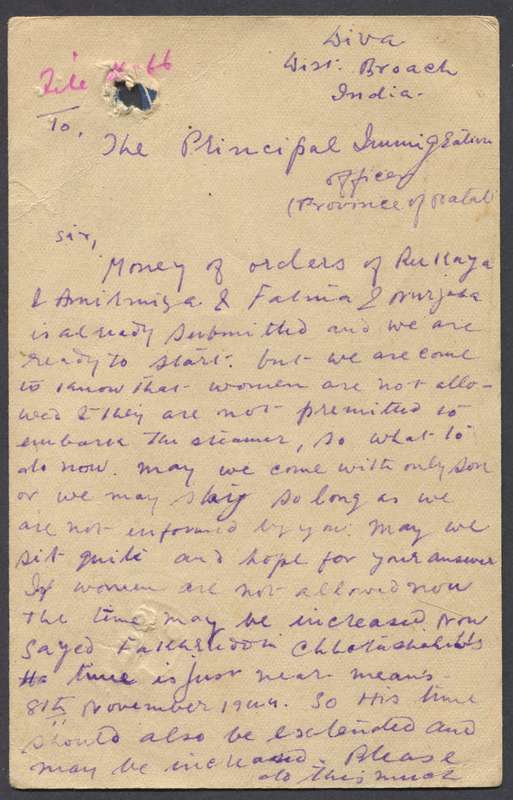 Diva
Dist. Broach
India.
File
66
To,
The Principal Immigration
officer
(Province of Natal
Sir,
Money of orders of Rukkaya
& Amirmiya & Fatma &
is already submitted and we are
ready to start. but we are come
to know that women are not allo-
wed & they are not premitted to
embark the steamer, so what to
do now. may we come with only son
or we may stay so long as we
are not informed by you. May we
sit quite and hope for your answer
If women are not allowed now
the time may be increased now
Sayed Fakhruddin Chhotasaheb's
time is just near mean's
8th November 1944. So His time
should also be extended and
may be increased. Please
do this much